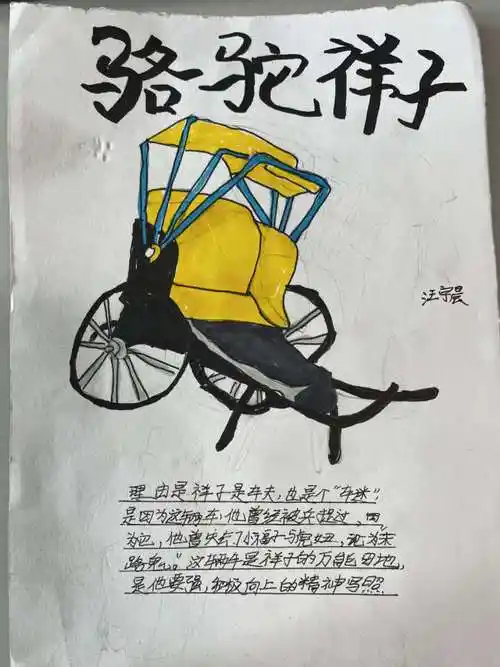 骆驼祥子
汪宇晨
理由是祥子是车夫,也是个“车迷”,
是因为这辆车,他曾经被兵捉过,因
为她,他曾失去了小福子与虎妞,
路鬼。”这辆车是祥子的万亩田地,
是他要强,积极向上的精神写照